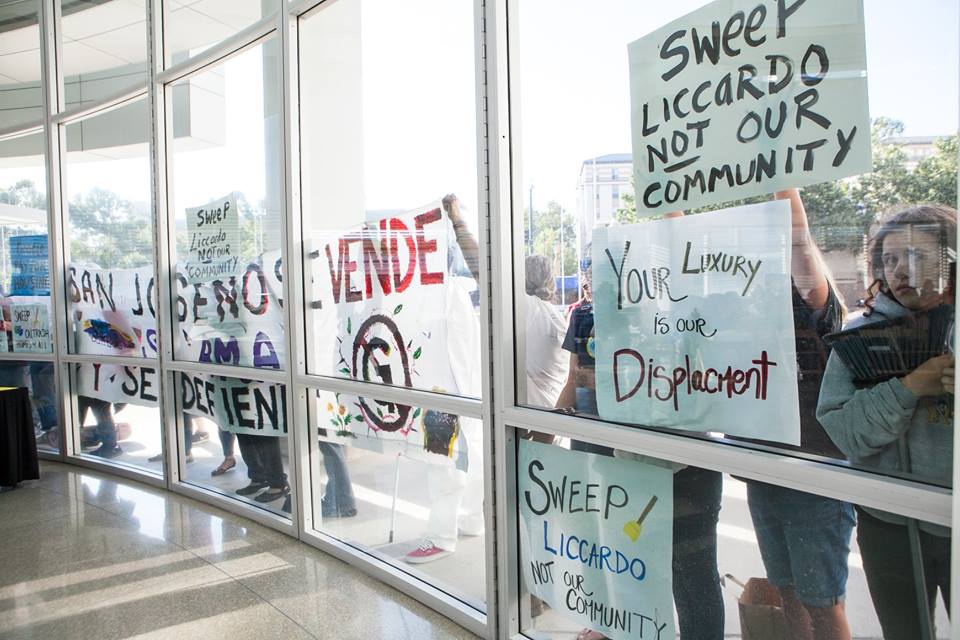 SWEEP
LICCARDO
NOT OUR
COMMUNITY
SWEEP
LICCARDO
NOT OUR
COMMUNITY
SAN JOSE NO SE VENDE
SE AMA
Y SE DEFIEND
G
YOUR LUXURY
IS OUR
DISPLACMENT
SWEEP
LICCARDO
NOT OUR
COMMUNITY
SWEEP